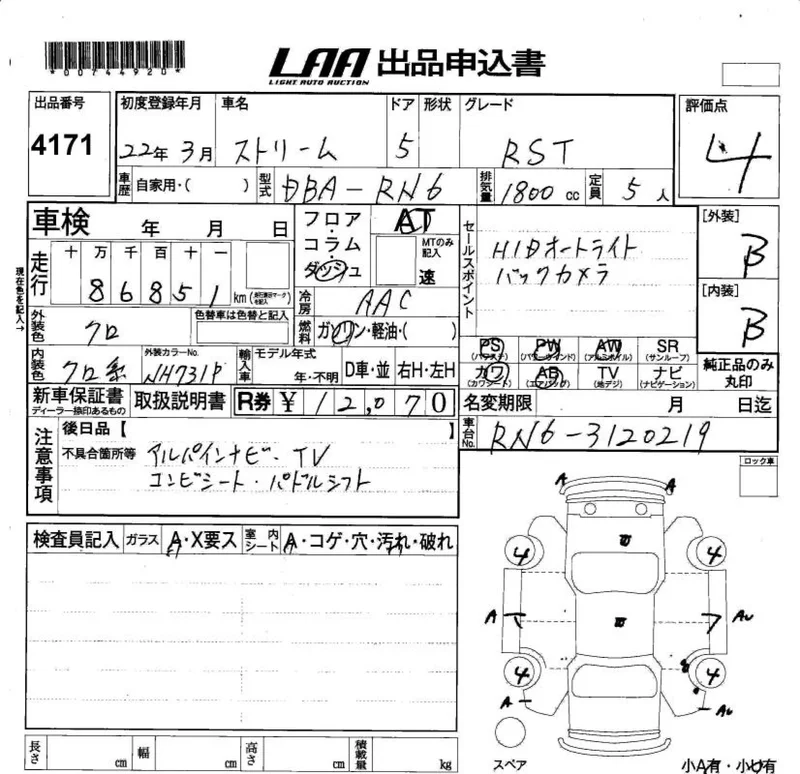 *00744920*
LAA 出品申込書
LIGHT AUTO AUCTION
出品番号
4171
初度登録年月 車名 ドア 形状 グレード
22年 3月 ストリーム 5 RST
評価点
4
車歴 自家用・( ) 型式 DBA-RN6 排気量 1800 cc 定員 5 人
車検 年 月 日
フロア・コラム・ダッシュ
AT
MTのみ記入
速
セールスポイント
HIDオートライト
バックカメラ
[外装]
B
[内装]
B
現在色を記入→
走行 十 万 千 百 十 一
8 6 8 5 1 km
冷房 AAC
外装色 クロ
色替車は色替と記入
燃料 ガソリン・軽油・( )
内装色 クロ系
外装カラーNo. NH731P
輸入車 モデル年式 年・不明 D車・並 右H・左H
PS (パワステ) PW (パワーウインド) AW (アルミホイル) SR (サンルーフ)
カワ (カワシート) AB (エアバッグ) TV (地デジ) ナビ (ナビゲーション)
純正品のみ丸印
新車保証書 ディーラー捺印あるもの
取扱説明書
R券 ¥ 12,070
名変期限 月 日迄
車台No. RN6-3120219
注意事項
後日品【 】
不具合箇所等 アルパインナビ・TV
コンビシート・パドルシフト
ロック車
検査員記入 ガラス A・X要ス 室内シート A・コゲ・穴・汚れ・破れ
A A
4 4
A A
4 4
A
長さ cm 幅 cm 高さ cm 積載量 kg
スペア
小A有・小U有